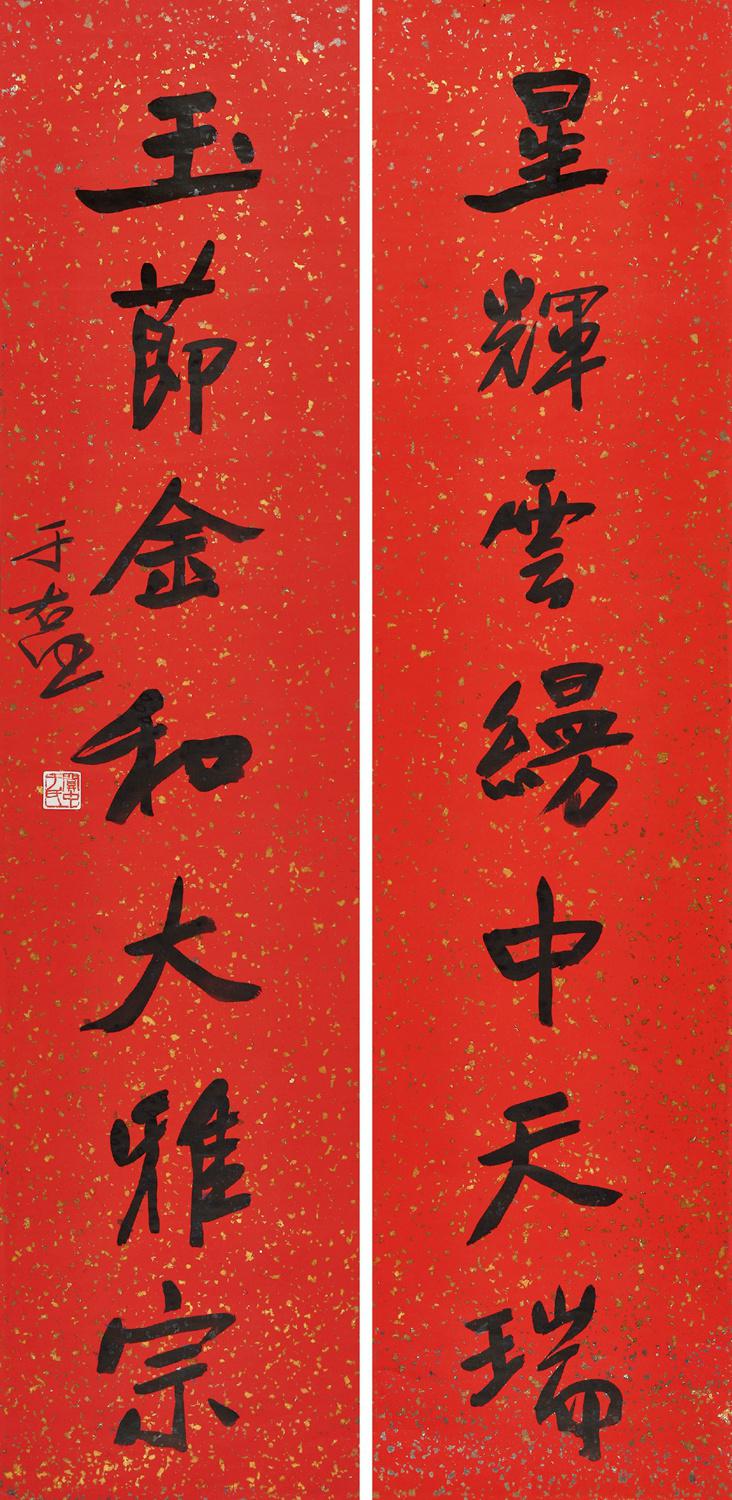 星輝雲縵中天瑞
玉節金和大雅宗
于右任